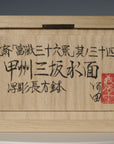 北斎「富嶽三十六景」其ノ三十四
甲州三坂水面
浮彫長方鉢